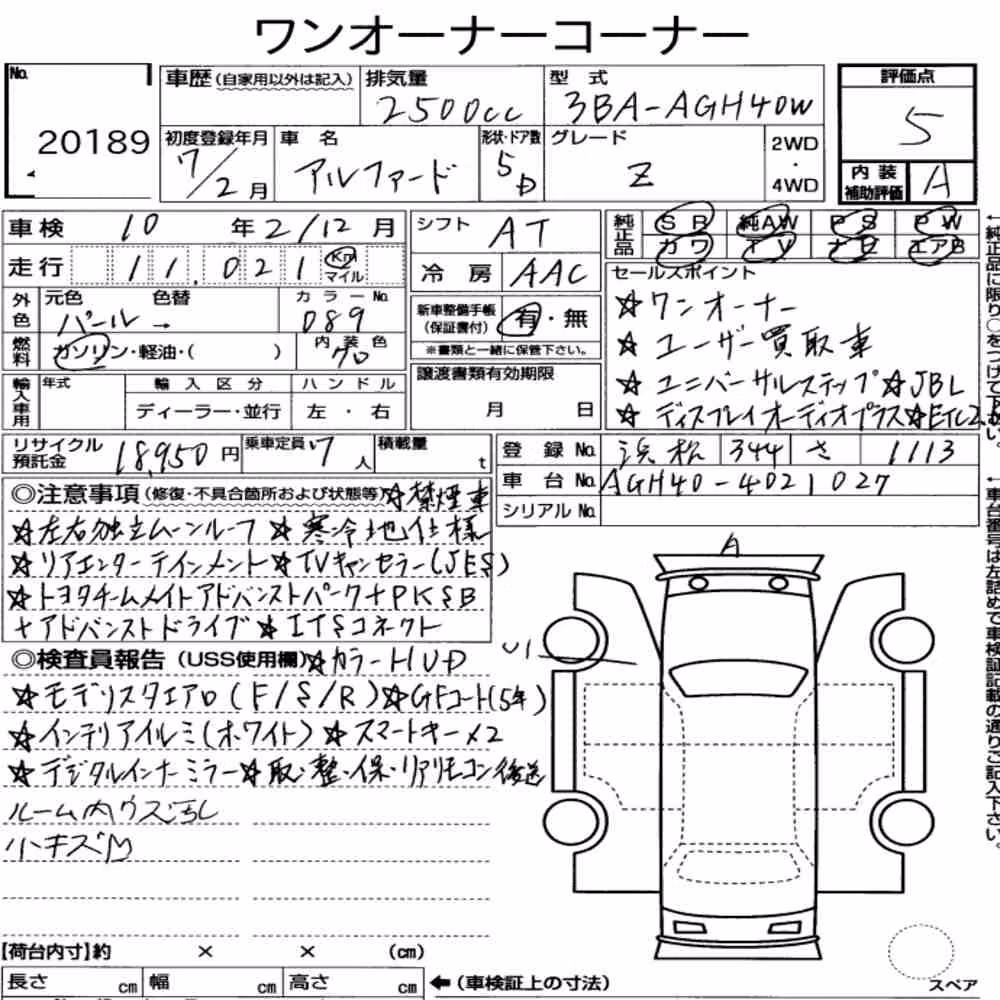 ワンオーナーコーナー
No. 20189
車歴(自家用以外は記入) 排気量 2500cc 型式 3BA-AGH40W
初度登録年月 7/2月 車名 アルファード 形状・ドア数 5D グレード Z 2WD・4WD
評価点 5
内装補助評価 A
車検 10年2/12月
走行 11,021 Km マイル
シフト AT
冷房 AAC
純正品 SR 純AW PS PW
カワ TV ナビ エアB
外色 元色 パール→ 色替 カラーNo. 089
燃料 ガソリン・軽油・( ) 内装色 クロ
新車整備手帳(保証書付) 有・無
※書類と一緒に保管下さい。
輸入車用 年式 輸入区分 ディーラー・並行 ハンドル 左・右
譲渡書類有効期限 月 日
セールスポイント
☆ワンオーナー
☆ユーザー買取車
☆ユニバーサルステップ☆JBL
☆ディスプレイオーディオプラス☆ETC2.0
リサイクル預託金 18,950円 乗車定員 7人 積載量 t
登録No. 浜松 344 さ 1113
車台No. AGH40-4021027
シリアルNo.
◎注意事項(修復・不具合箇所および状態等)☆禁煙車
☆左右独立ムーンルーフ ☆寒冷地仕様
☆リアエンターテインメント☆TVキャンセラー(JES)
☆トヨタチームメイトアドバンストパーク+PKSB
+アドバンストドライブ☆ITSコネクト
◎検査員報告(USS使用欄)☆カラーHUD
☆モデリスタエアロ(F/S/R)☆GFコート(5年)
☆インテリアイルミ(ホワイト)☆スマートキー×2
☆デジタルインナーミラー☆取・整・保・リアリモコン後送
ルーム内ウス汚レ
小キズ
A
U1
【荷台内寸】約 × × (cm)
長さ cm 幅 cm 高さ cm ←(車検証上の寸法)
スペア
←純正品に限り○をつけて下さい。
←車台番号は左詰めで車検証記載の通りご記入下さい。